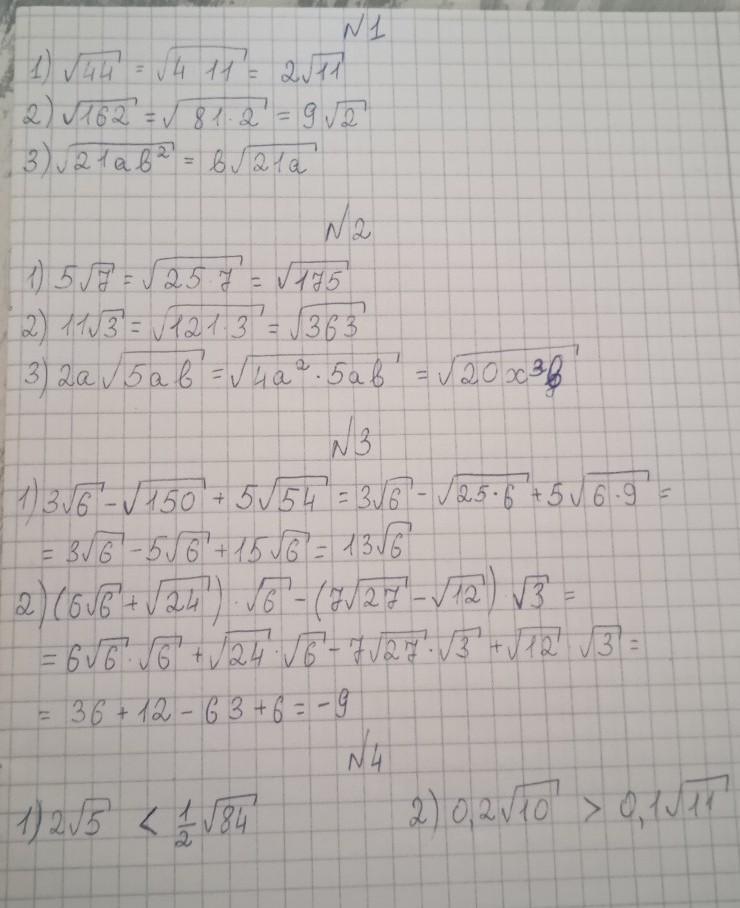 №1
1) √44 = √4 11 = 2√11
2) √162 = √81·2 = 9√2
3) √21ab² = b√21a
№2
1) 5√7 = √25·7 = √175
2) 11√3 = √121·3 = √363
3) 2a√5ab = √4a²·5ab = √20x³b
№3
1) 3√6 - √150 + 5√54 = 3√6 - √25·6 + 5√6·9 =
= 3√6 - 5√6 + 15√6 = 13√6
2) (6√6 + √24)·√6 - (7√27 - √12)·√3 =
= 6√6·√6 + √24·√6 - 7√27·√3 + √12 √3 =
= 36 + 12 - 63 + 6 = -9
№4
1) 2√5 < 1/2 √84 2) 0,2√10 > 0,1√11